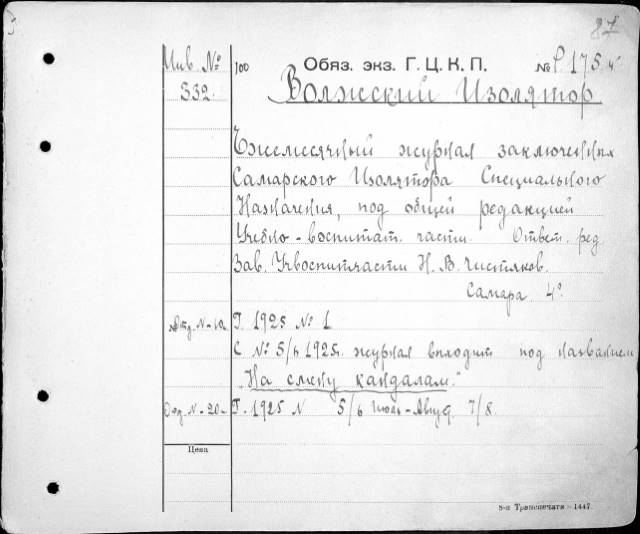 87
Инв № 100 Обяз. экз. Г. Ц. К. П. № Р. 175
332. Волжский Изолятор
Ежемесячный журнал заключенных
Самарского Изолятора Специального
Назначения, под общей редакцией
Учебно-воспитат. части. Ответ. ред.
Зав. Учвоспитчасти Н. В. Чистяков.
Самара 4°.
Г. 1925 № 1
С № 5/6 1925г. журнал выходит под названием
„На смену кандалам."
Г. 1925 N 5/6 Июль-Август. 7/8.
Цена
8-я Транспечати - 1447.